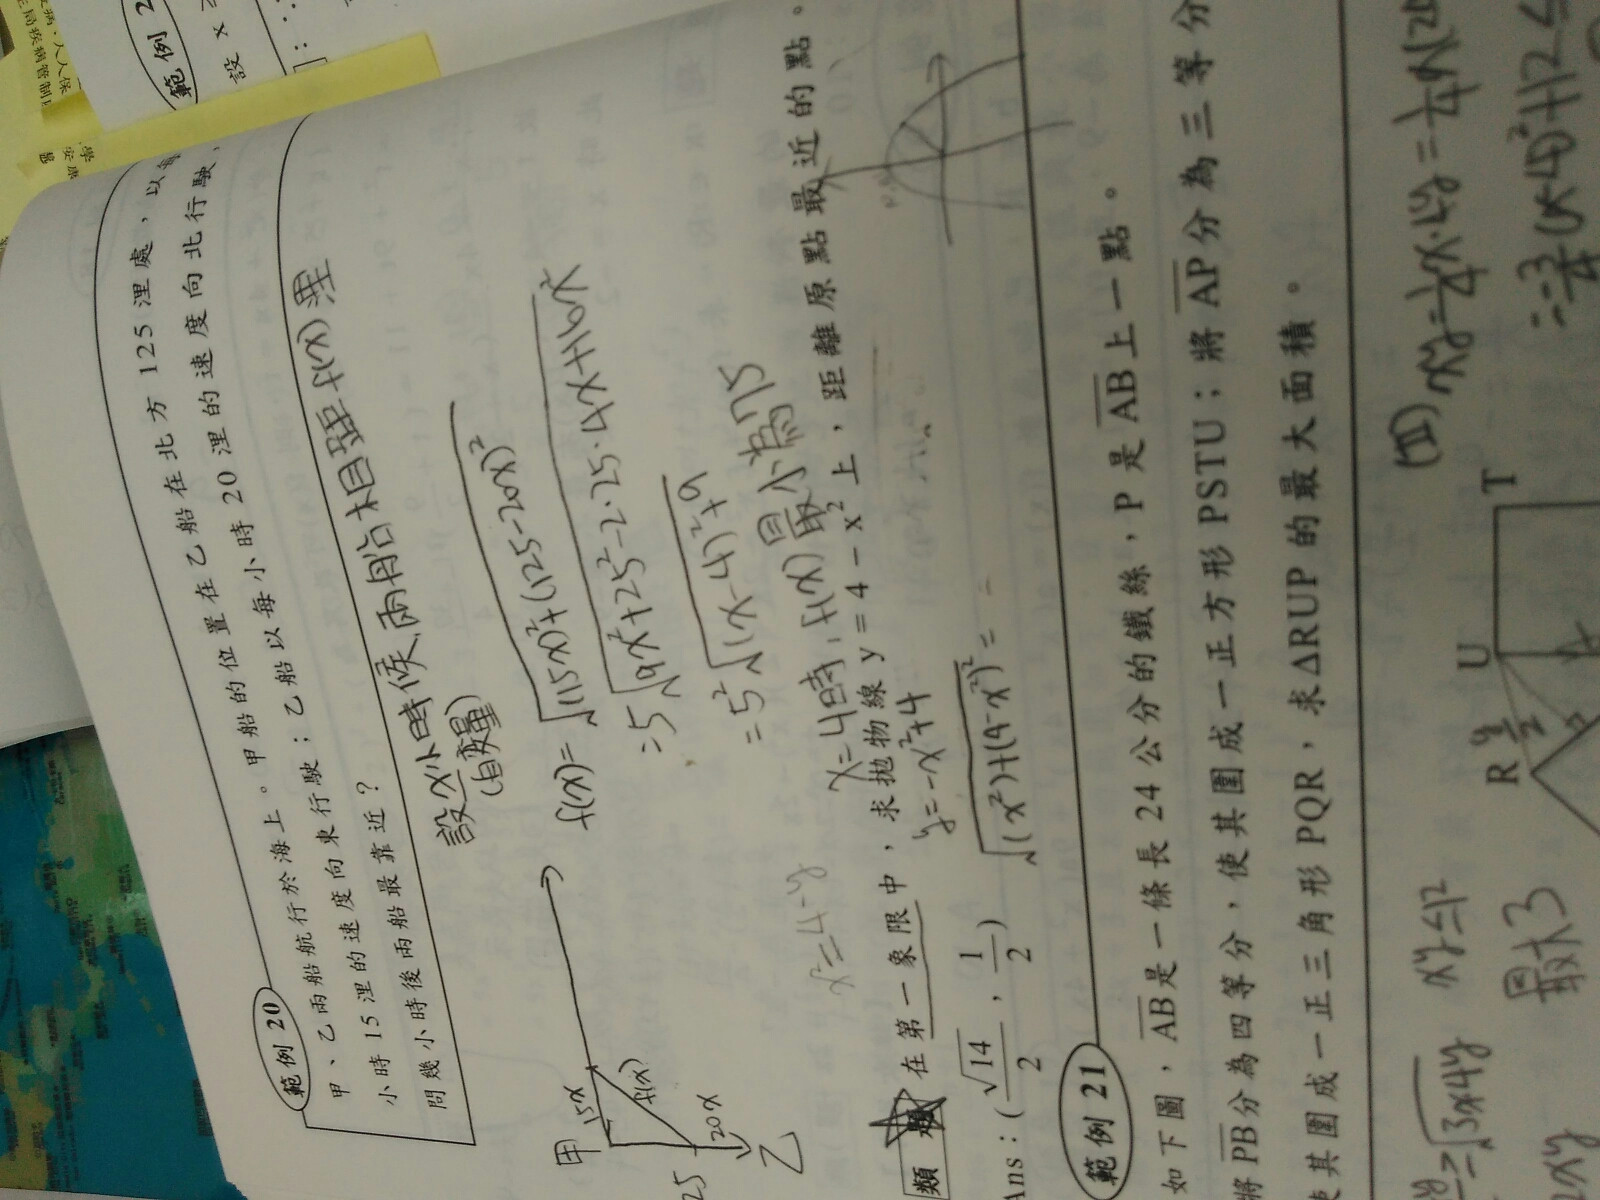 範例 2
設 x
範例 20
甲、乙兩船航行於海上。甲船的位置在乙船在北方 125 浬處，以
小時 15 浬的速度向東行駛；乙船以每小時 20 浬的速度向北行駛，
問幾小時後兩船最靠近？
設 x 小時候、兩船相距 f(x) 浬
(自變量)
甲
15x
f(x)
20x
乙
25
f(x)=√(15x)²+(125-20x)²
=5√9x²+25²-2·25·4x+16x²
=5²√(x-4)²+9
x=4時，f(x)最小為75
x²=4-y
類題
在第一象限中，求拋物線 y = 4 − x² 上，距離原點最近的點。
y=-x²+4
Ans：(√14/2 , 1/2)
√(x²)+(4-x²)² =
範例 21
如下圖，AB是一條長 24 公分的鐵絲，P 是 AB上一點。
將 PB分為四等分，使其圍成一正方形 PSTU；將 AP分為三等分
使其圍成一正三角形 PQR，求 ΔRUP 的最大面積。
xy≤12
最大3
(II) xy=1/4x·4y=
T
U
R